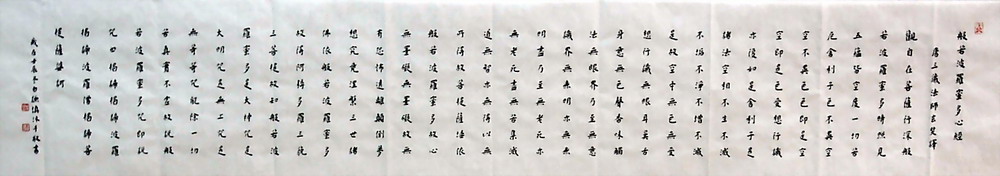 般若波羅蜜多心經
唐三藏法師玄奘譯
觀自在菩薩行深般
若波羅蜜多時照見
五蘊皆空度一切苦
厄舍利子色不異空
空不異色色即是空
空即是色受想行識
亦復如是舍利子是
諸法空相不生不滅
不垢不淨不增不減
是故空中無色無受
想行識無眼耳鼻舌
身意無色聲香味觸
法無眼界乃至無意
識界無無明亦無無
明盡乃至無老死亦
無老死盡無苦集滅
道無智亦無得以無
所得故菩提薩埵依
般若波羅蜜多故心
無罣礙無罣礙故無
有恐怖遠離顛倒夢
想究竟涅槃三世諸
佛依般若波羅蜜多
故得阿耨多羅三藐
三菩提故知般若波
羅蜜多是大神咒是
大明咒是無上咒是
無等等咒能除一切
苦真實不虛故說般
若波羅蜜多咒即說
咒曰揭諦揭諦波羅
揭諦波羅僧揭諦菩
提薩婆訶
歲在壬辰冬月沐手敬書